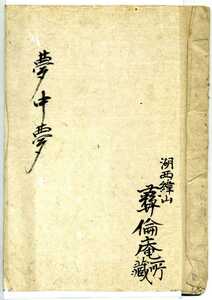 夢中夢
湖西緯山
彛倫庵所藏